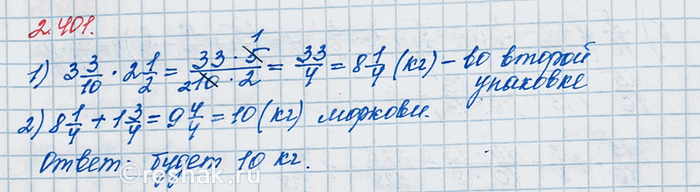 2.401.
1) 3 3/10 · 2 1/2 = (33 · 5)/(10 · 2) = 33/4 = 8 1/4 (кг) – во второй
упаковке
2) 8 1/4 + 1 3/4 = 9 4/4 = 10 (кг) моркови.
Ответ: будет 10 кг.
reshak.ru